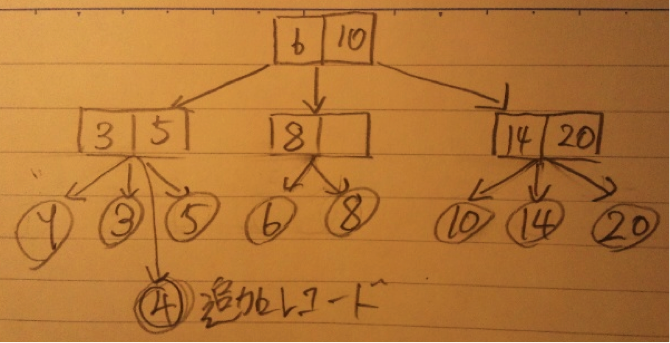 6 10
3 5 8 14 20
1 3 5 6 8 10 14 20
4 追加レコード